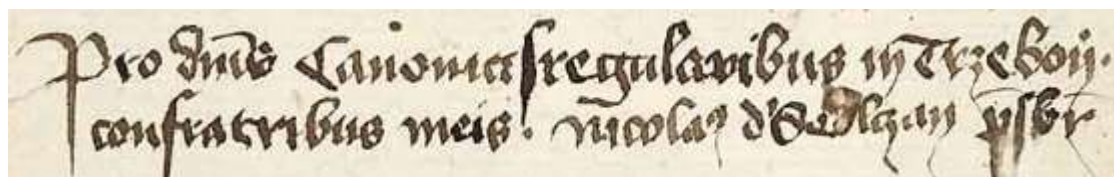 Pro dnis Canonicis regularibus in Trzebon.
confratribus meis. Nicolaus d' Sedlczan psbr